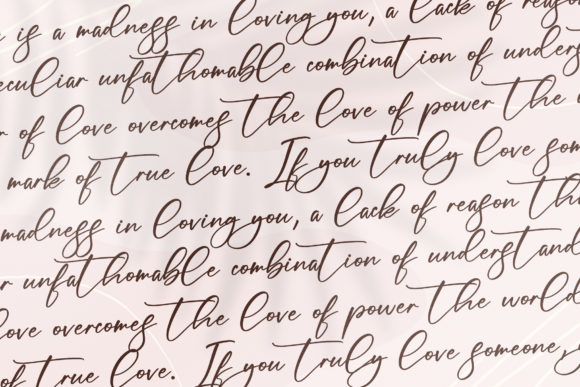 is a madness in loving you, a lack of reason
eculiar unfathomable combination of underst
r of love overcomes the love of power the w
mark of true love. If you truly love som
madness in loving you, a lack of reason th
ar unfathomable combination of understand
love overcomes the love of power the world
of true love. If you truly love someone, y